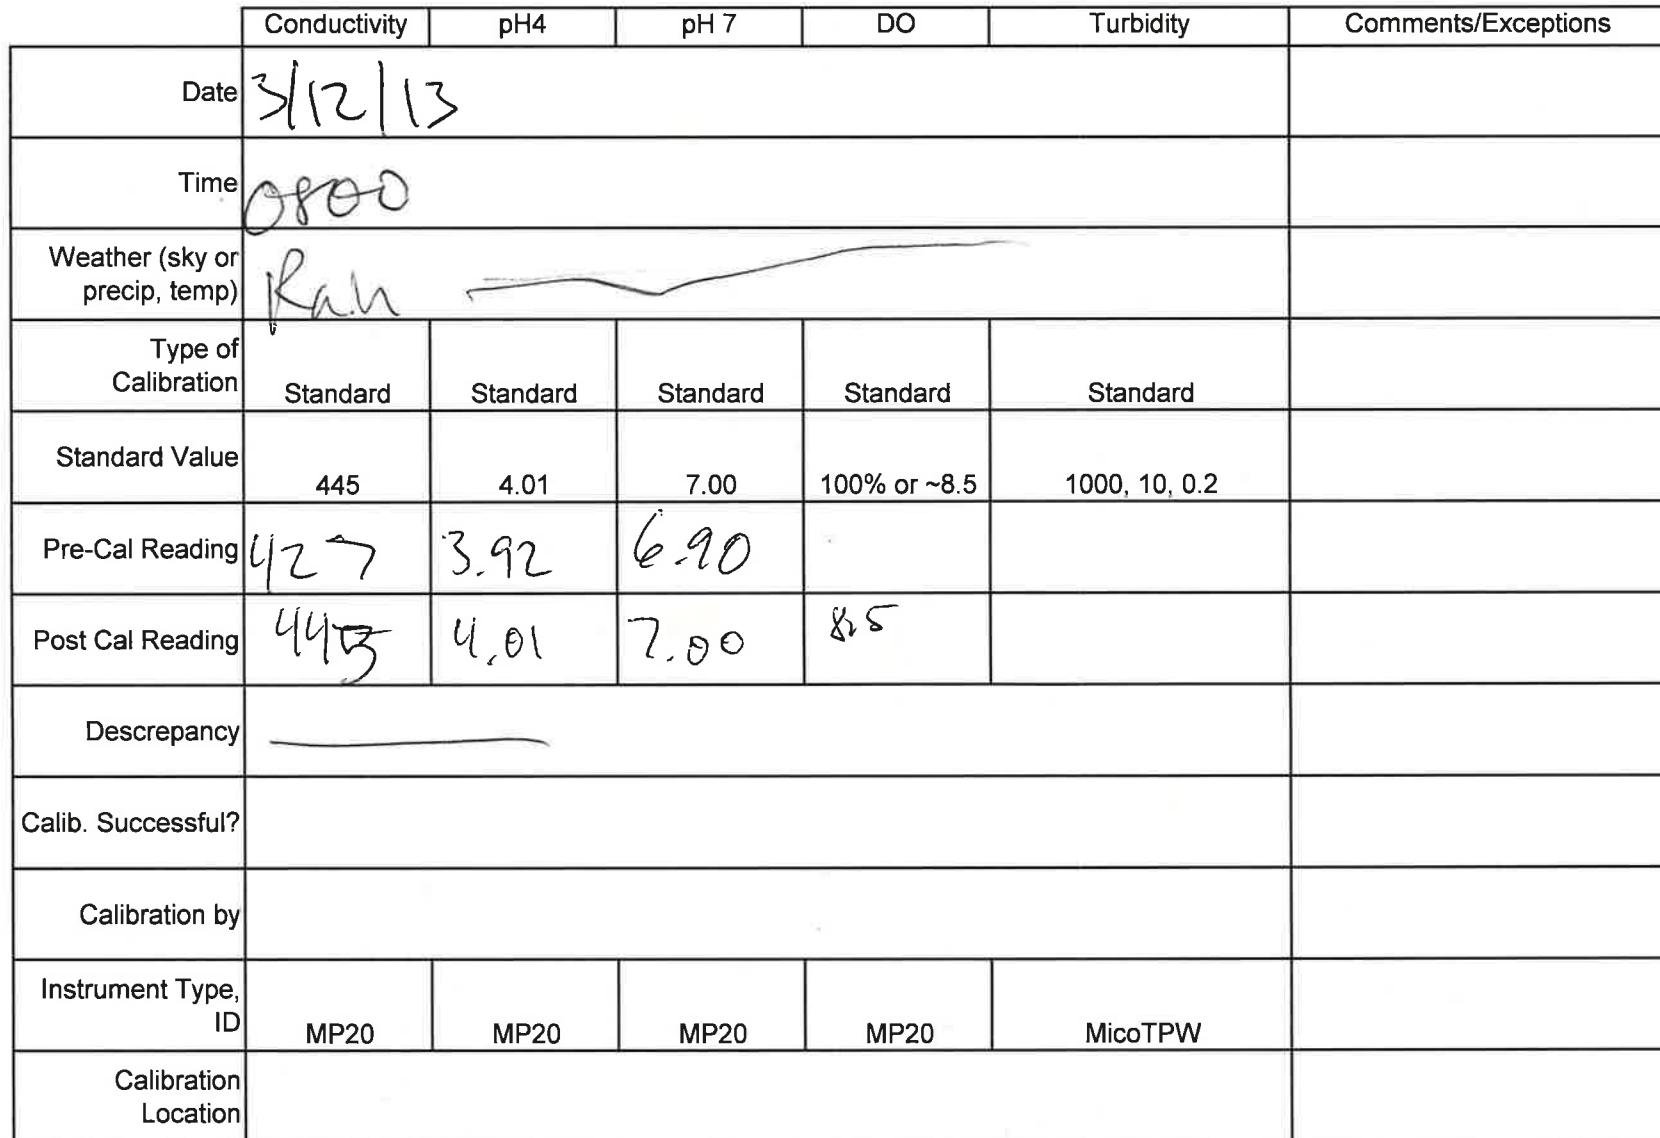 Conductivity pH4 pH 7 DO Turbidity Comments/Exceptions
Date 3/12/13
Time 0800
Weather (sky or
precip, temp) Rain
Type of
Calibration Standard Standard Standard Standard Standard
Standard Value 445 4.01 7.00 100% or ~8.5 1000, 10, 0.2
Pre-Cal Reading 427 3.92 6.90
Post Cal Reading 445 4.01 7.00 8.5
Descrepancy
Calib. Successful?
Calibration by
Instrument Type,
ID MP20 MP20 MP20 MP20 MicoTPW
Calibration
Location